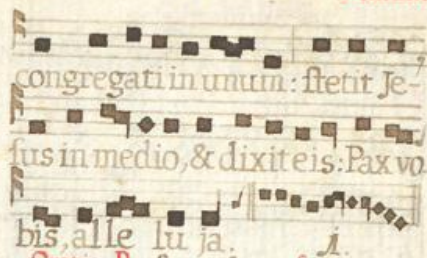 congregati in unum: stetit Je-
sus in medio, & dixit eis: Pax vo
bis, alle lu ja. j.